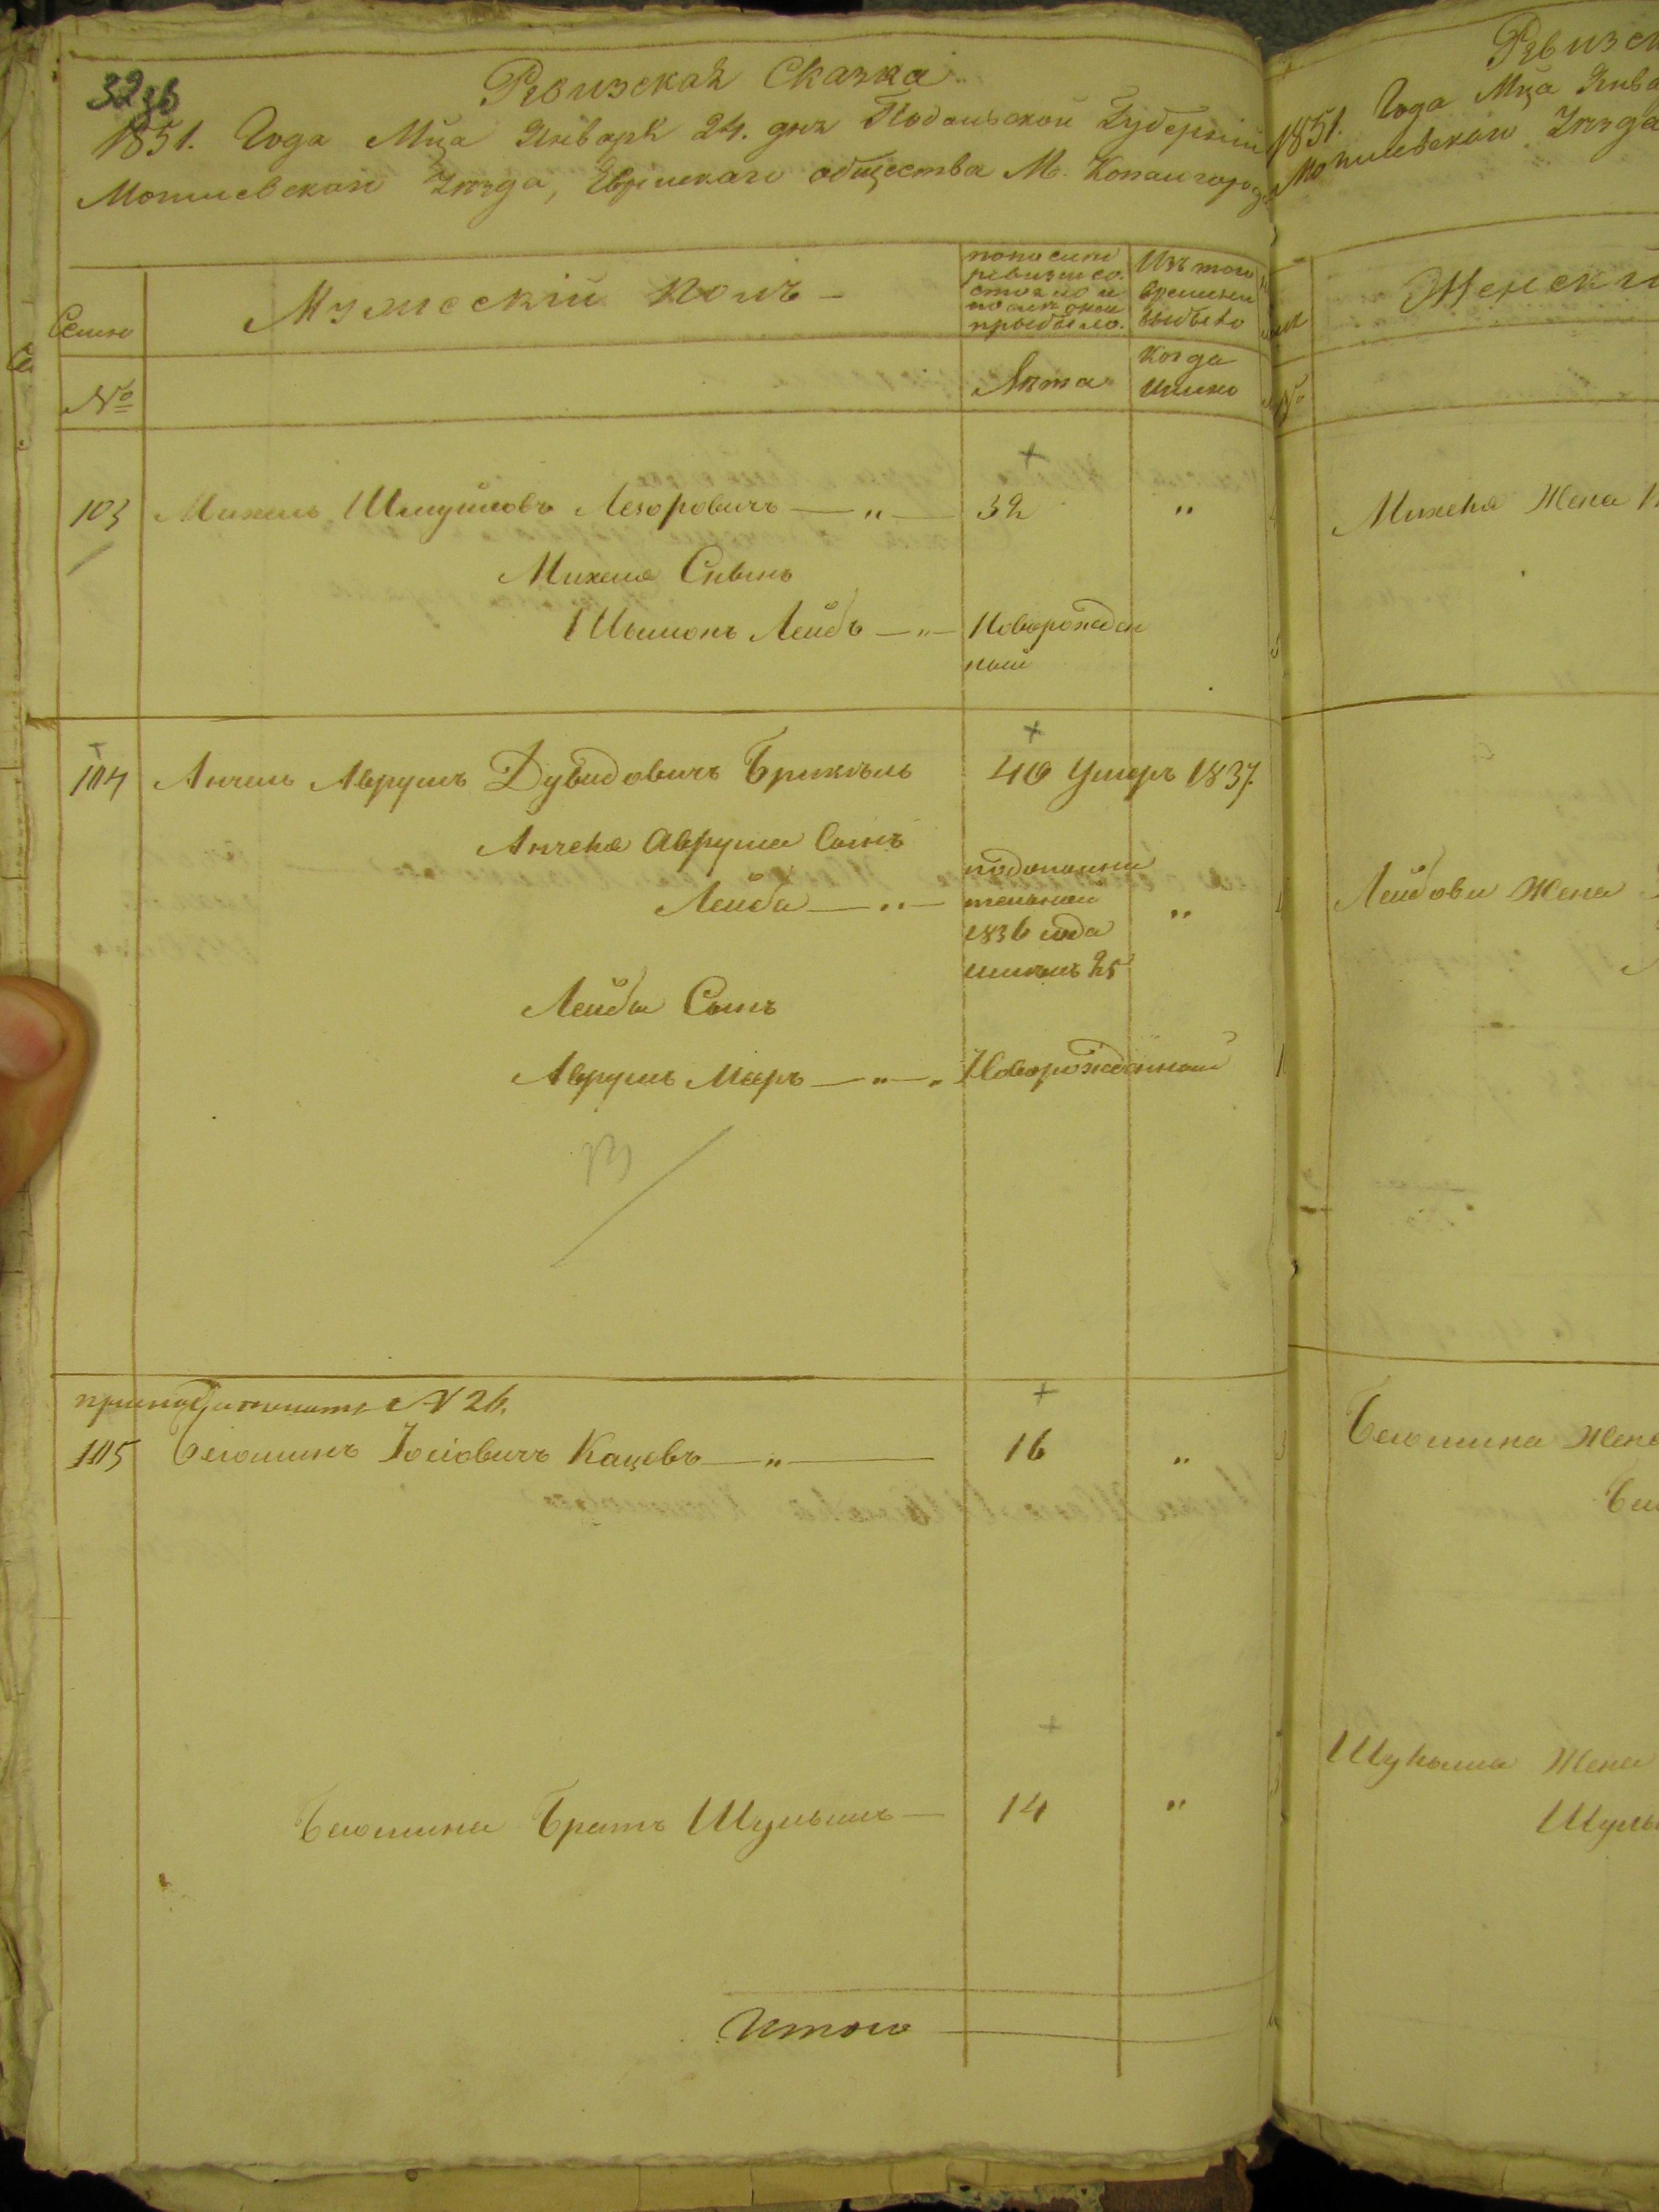 Ревизская Сказка
1851. Года Мца Января 24. дня Подольской Губернии
Могилевскаго Уезда, Еврейскаго общества М. Копайгорода
Семьи
Мужескій полъ
по последней
ревизіи со-
стояло и
после оной
прибыло.
Изъ того
времени
выбыло
№
Лета
Когда
именно
103 Михель Шмуйловъ Лезоровичъ — „ — 32 „
Михеля Сынъ
Шымонъ Лейбъ — „ — Новорожден
ный
104 Анчель Аврумъ Дувидовичъ 40 Умеръ 1837.
Анчеля Аврума Сынъ
Лейба — „ — по дополни
тельной
1836 года
25 „
Лейбы Сынъ
Аврумъ Мееръ — „ — „ Новорожденный
№ 26.
105 Беюминъ Іосіовичъ Кацевъ — „ — 16 „
Беюмина Братъ Шулымъ — 14 „
Итого
1851. Года Мца Янва
Могилевскаго Уезда
Женскі
№
Михеля Жена
Лейбови Жена
Беюмина Жена
Шулыма Жена
Шулы